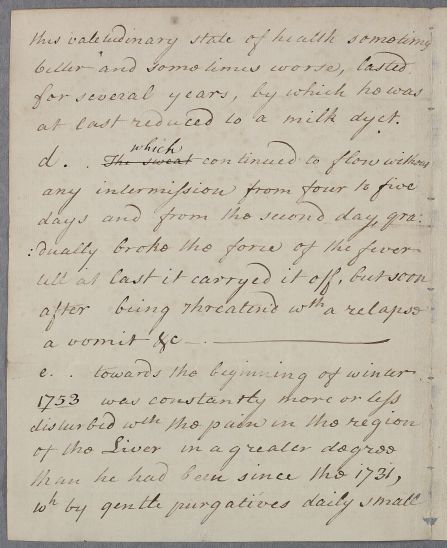 this valetudinary state of health sometimes
better and sometimes worse, lasted
for several years, by which he was
at last reduced to a milk dyet.
which
d. . The sweat continued to flow without
any intermission from four to five
days and from the second day, gra:
:dually broke the force of the fever
till at last it carryed it off, but soon
after being threatend wth a relapse
a vomit &c —.
e. . towards the beginning of winter
1753 was constantly more or less
disturbed wth the pain in the region
of the Liver in a greater degree
than he had been since the 1731,
wh by gentle purgatives daily small